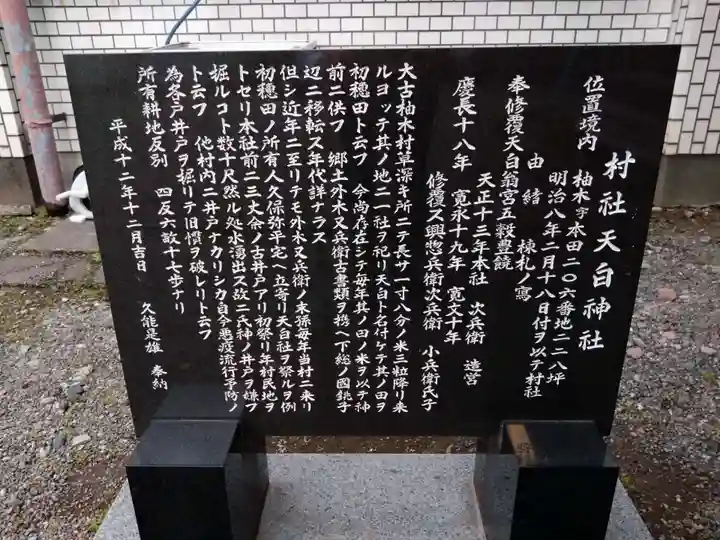 村社天白神社
位置境内 柚木字本田二〇六番地二二八坪
明治八年二月十八日付ヲ以テ村社
由緒 棟札ノ寫
奉修覆天白翁宮五穀豊饒
天正十三年本社 次兵衛 造宮
慶長十八年 寛永十九年 寛文十年
修覆ス興惣兵衛次兵衛 小兵衛氏子
大古柚木村草深キ所ニテ長サ一寸八分ノ米三粒降リ来
ルヨッテ其ノ地ニ一社ヲ祀リ天白ト名付ケテ其ノ田ヲ
初穂田ト云フ 今尚存在シテ毎年其ノ田ノ米ヲ以テ神
前ニ供フ 郷土外木又兵衛古書類ヲ携ヘ下総ノ國銚子
辺ニ移転ス年代詳ナラス
但シ近年ニ至リテモ外木又兵衛ノ末孫毎年当村ニ来リ
初穂田ノ所有人久保弥平宅ヘ立寄リ天白社ヲ祭ルヲ例
トセリ本社前ニ三丈余ノ古井戸アリ初祭リ年村民地ヲ
堀ルコト数十尺然ル処水湧出ス故ニ氏神ノ井戸ヲ嫌フ
ト云フ 他村内ニ井戸ナカリシカ自今悪疫流行予防ノ
為各戸井戸ヲ掘リテ旧慣ヲ破レリト云フ
所有耕地反別 四反六畝十七歩ナリ
平成十二年十二月吉日 久能是雄 奉納